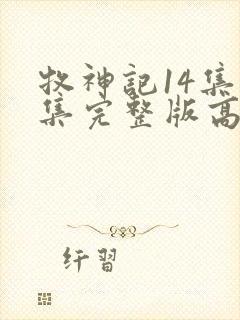 牧神記14集
集完整版高
纤習